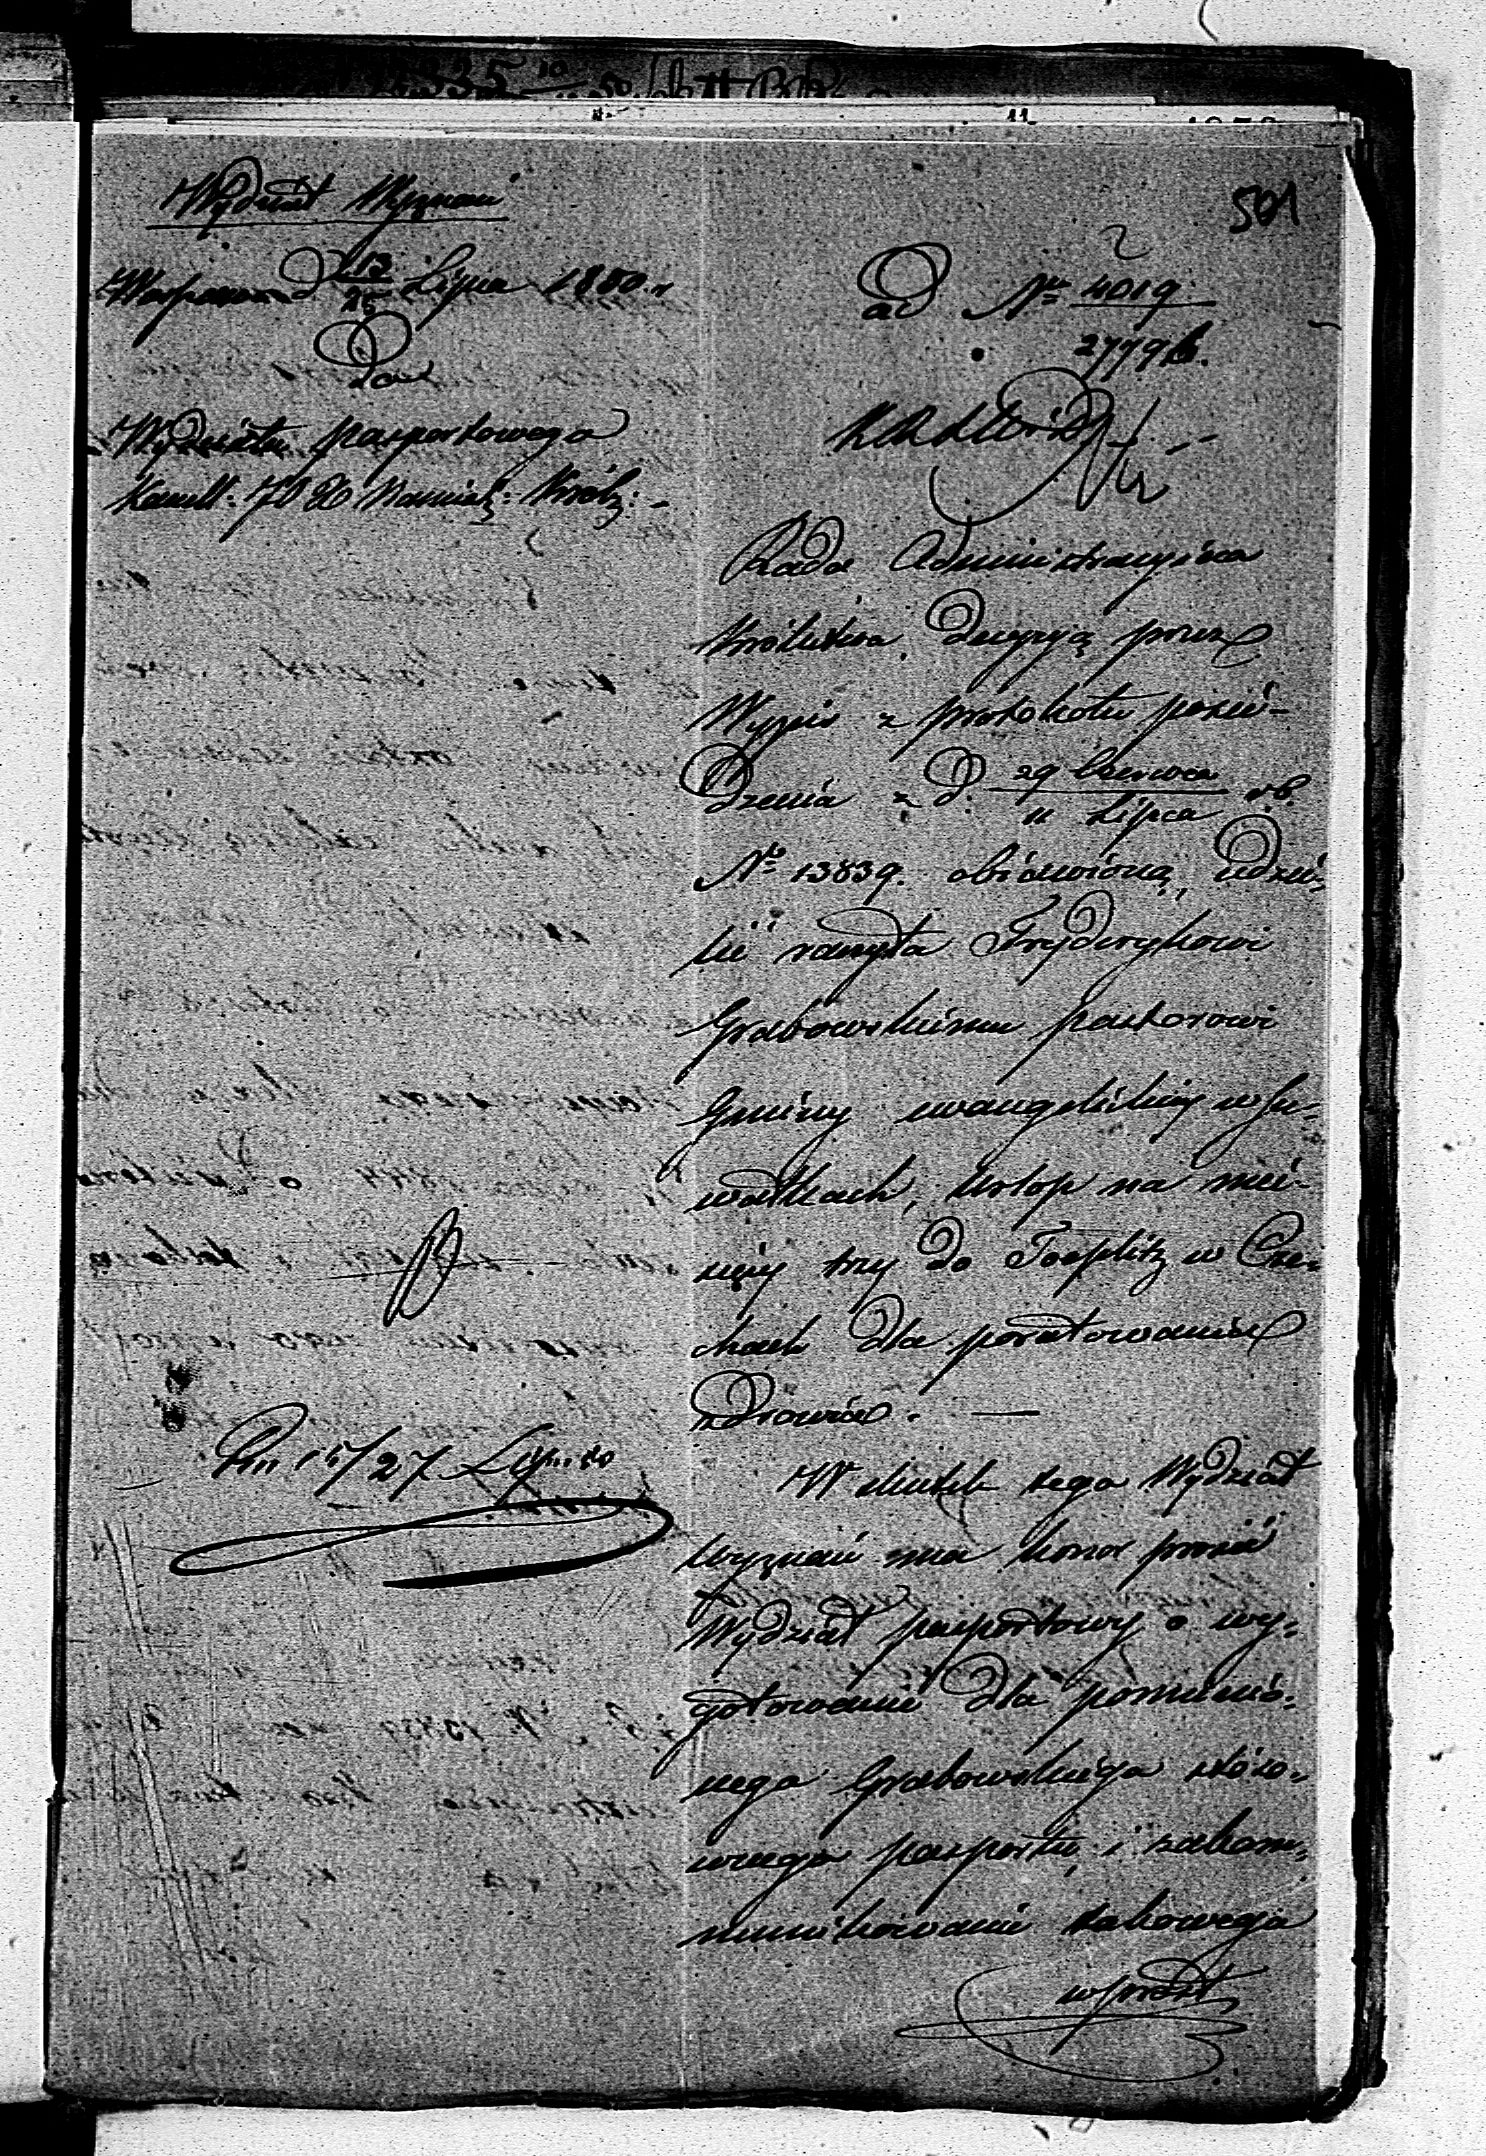 501
Wydział Wyznań
Warszawa d 13/25 Lipca 1850 r
Do
Wydziału paszportowego
Kancell: JO Xo Namiest: Król:
ad Nr 4019
27796.
Rada Administracyina
Królestwa, decyzyą przez
Wypis z protokołu posie-
dzenia z d. 29 Czerwca / 11 Lipca r.b.
No 13839. obiawioną, udzie-
lić raczyła Frydrykowi
Grabowskiemu pastorowi
Gminy ewangelickiey w Su-
wałkach, urlop na mie-
sięcy trzy do Toeplitz w Cze-
chach dla poratowania
zdrowia. —
W skutek tego Wydział
Wyznań ma honor prosić
Wydział paszportowy o wy-
gotowanie dla pomienio-
nego Grabowskiego stóso-
wnego paszportu i zakom-
munikowanie takowego
wprost
15/27 Lipca